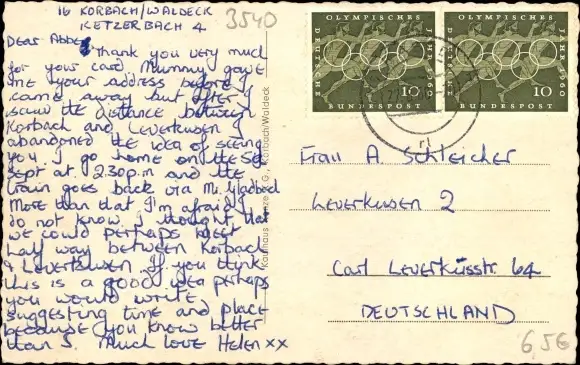 16 KORBACH/WALDECK
KETZERBACH 4
3540
Dear Abbe
Thank you very much
for your card Mummy gave
me your address before I
came away but after I
saw the distance between
Korbach and Leverkusen I
abandoned the idea of seeing
you. I go home on the
Sept at 12.30p.m and the
train goes back via M. Gladbach
More than that I'm afraid I
do not know. I thought that
we could perhaps meet
half way between Korbach
& Leverkusen. If you think
this is a good idea perhaps
you would write
suggesting time and place
because you know better
than I. Much love Helen xx
Kaufhaus Korbach/Waldeck
OLYMPISCHES JAHR 1960
DEUTSCHE BUNDESPOST
10
OLYMPISCHES JAHR 1960
DEUTSCHE BUNDESPOST
10
Frau A Schleicher
Leverkusen 2
Carl Leverküsstr. 64
DEUTSCHLAND
656